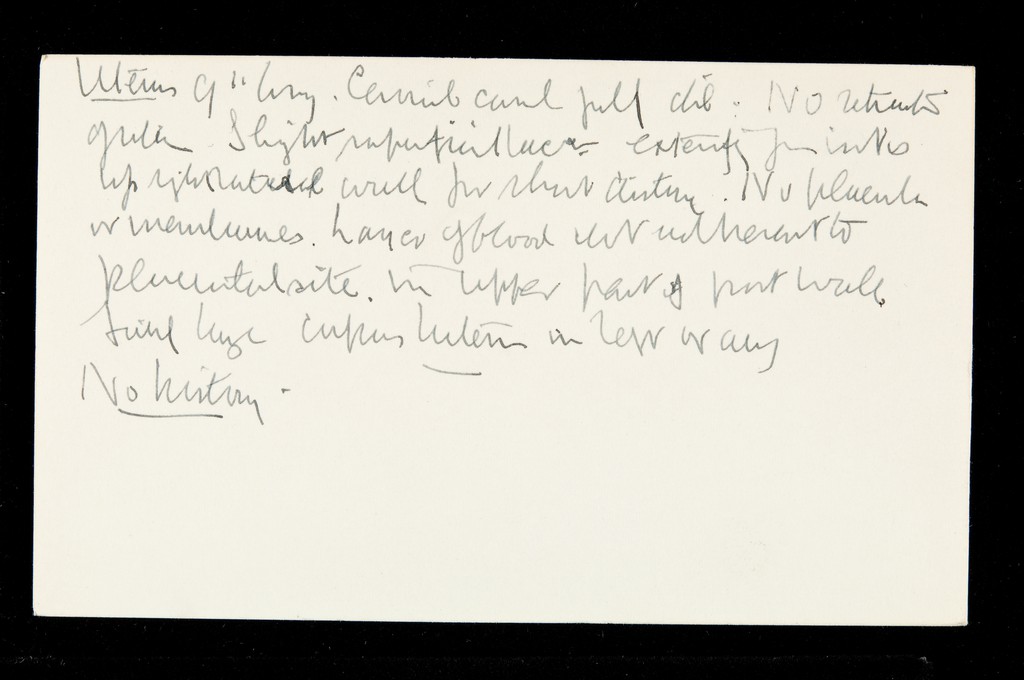 Uterus 9" long. Cervical canal full dil. No retraction
Slight superficial lacn extending from int os
up right lateral wall for short distance. No placenta
or membranes. Layer of blood clot adherent to
placental site. in upper part of post wall.
Fairly large corpus luteum in left ovary
No history -